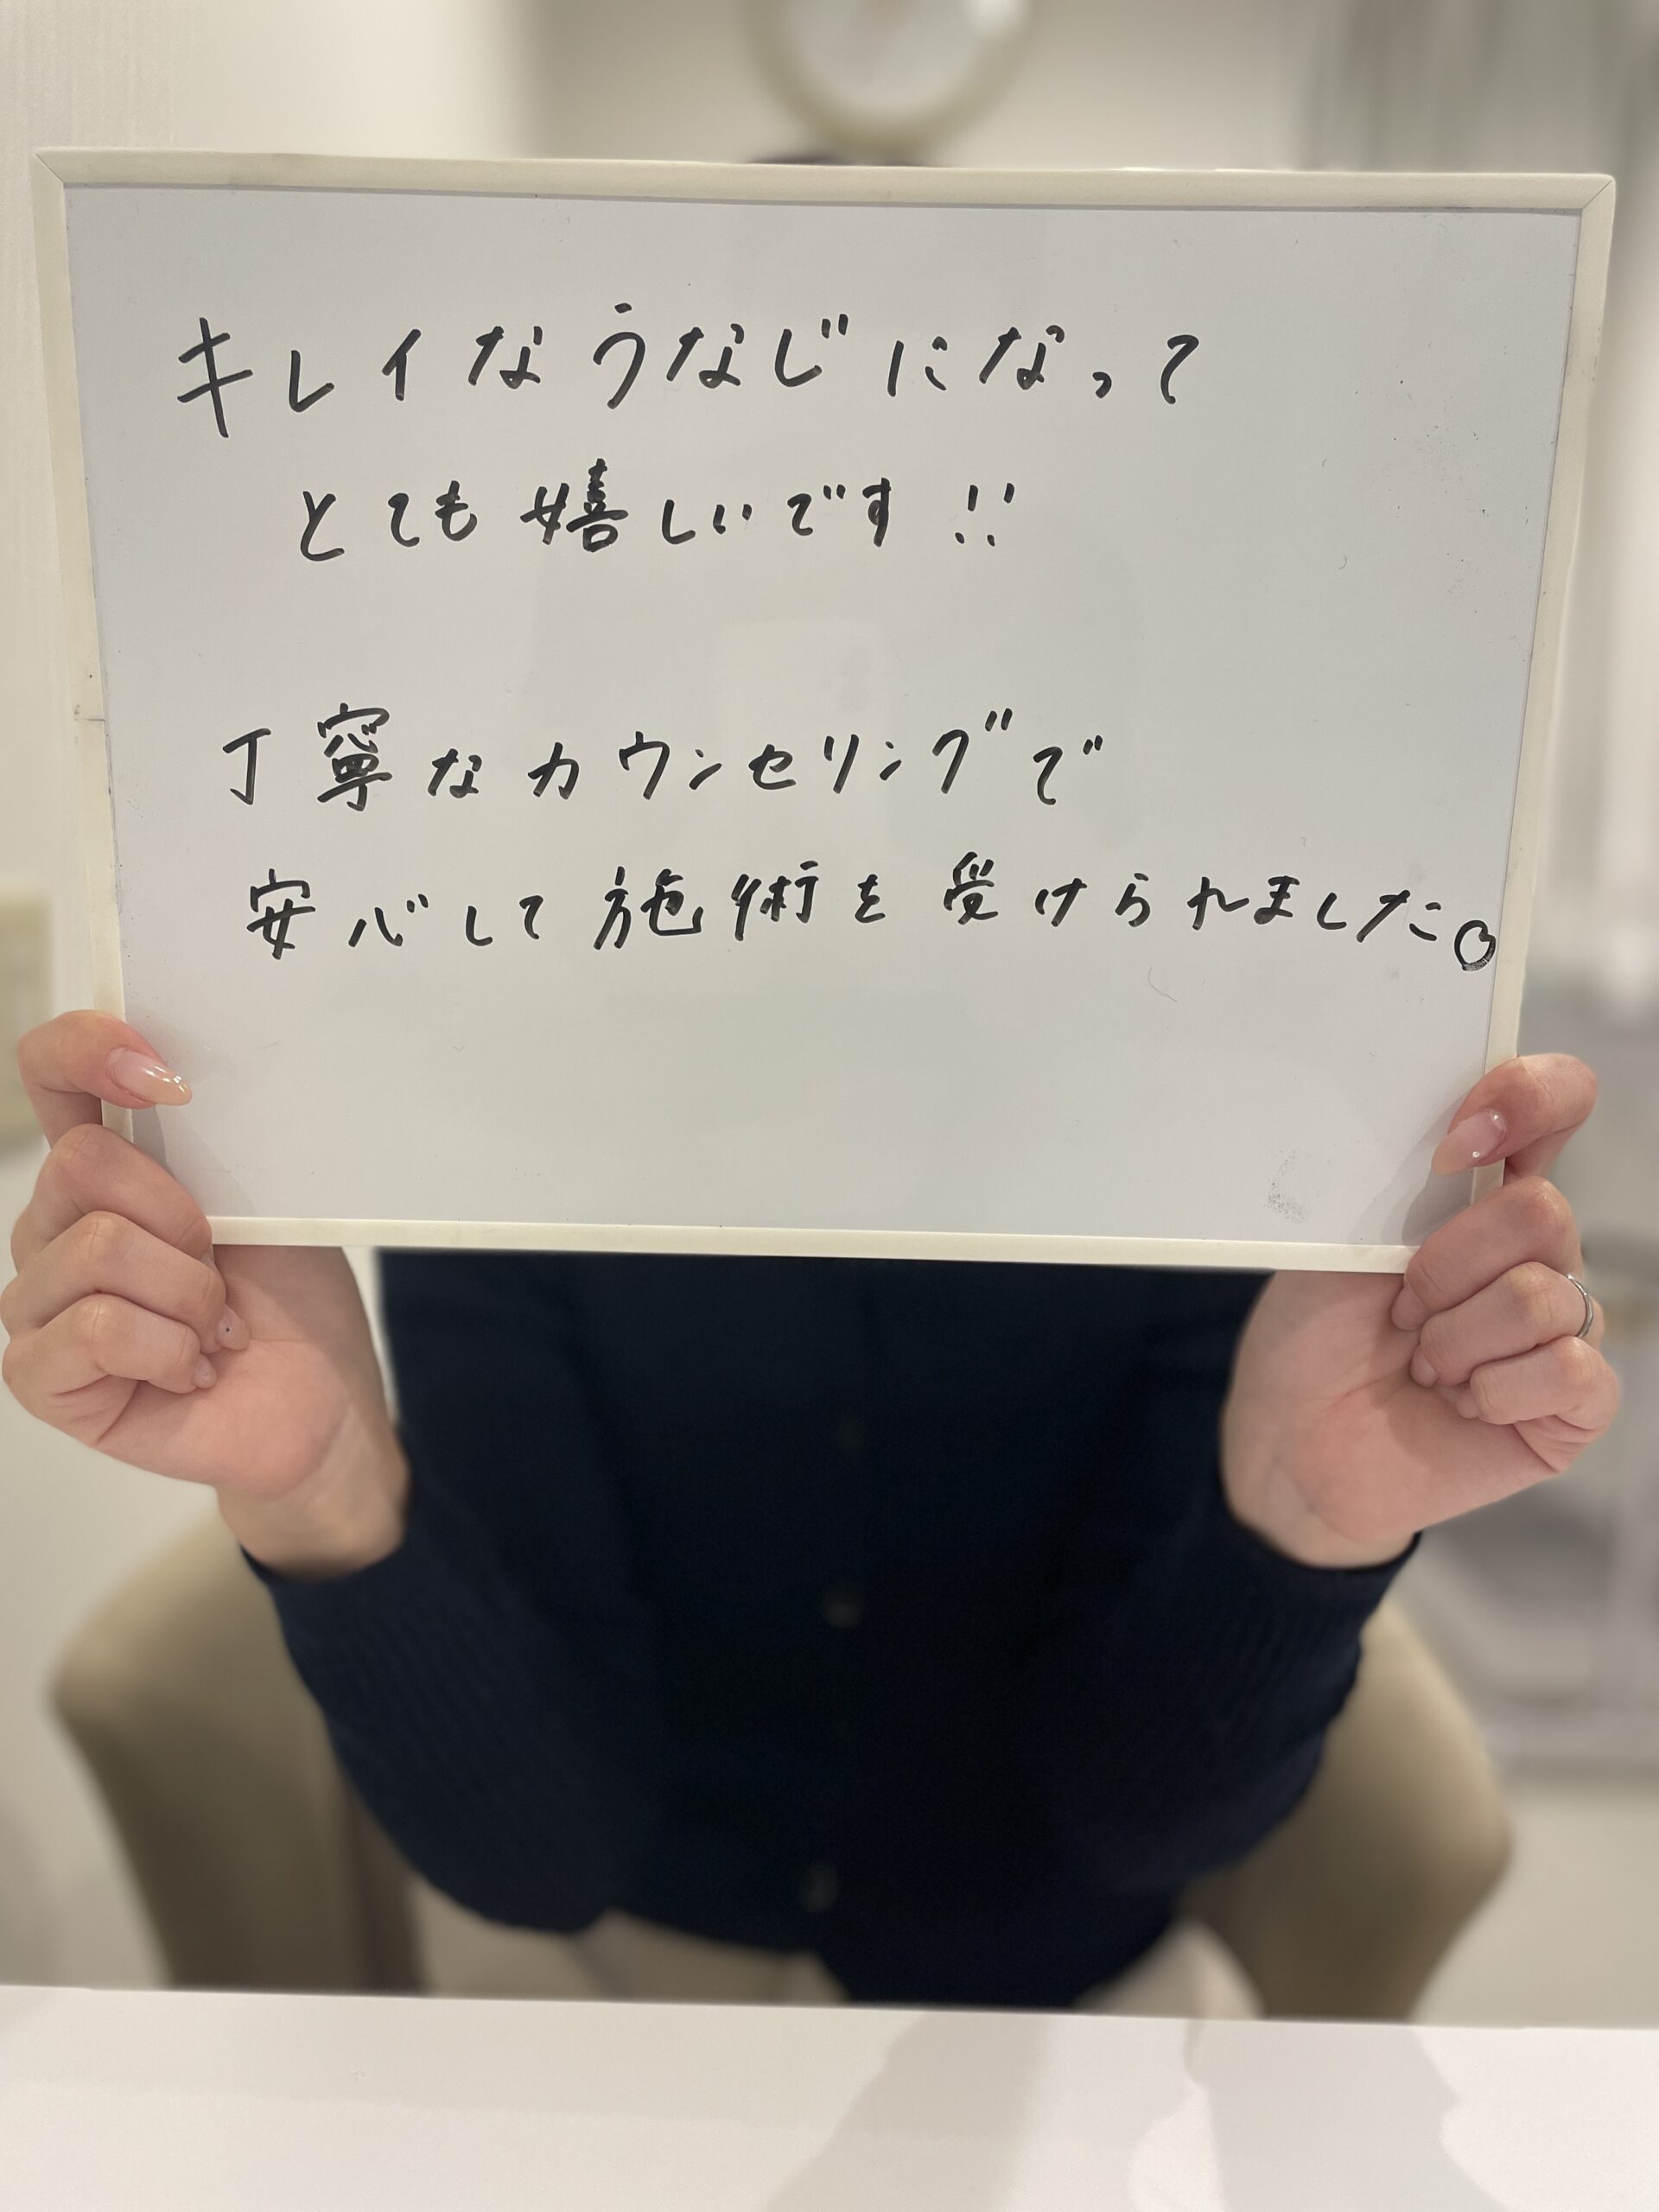 キレイなうなじになって
とても嬉しいです!!
丁寧なカウンセリングで
安心して施術を受けられました。